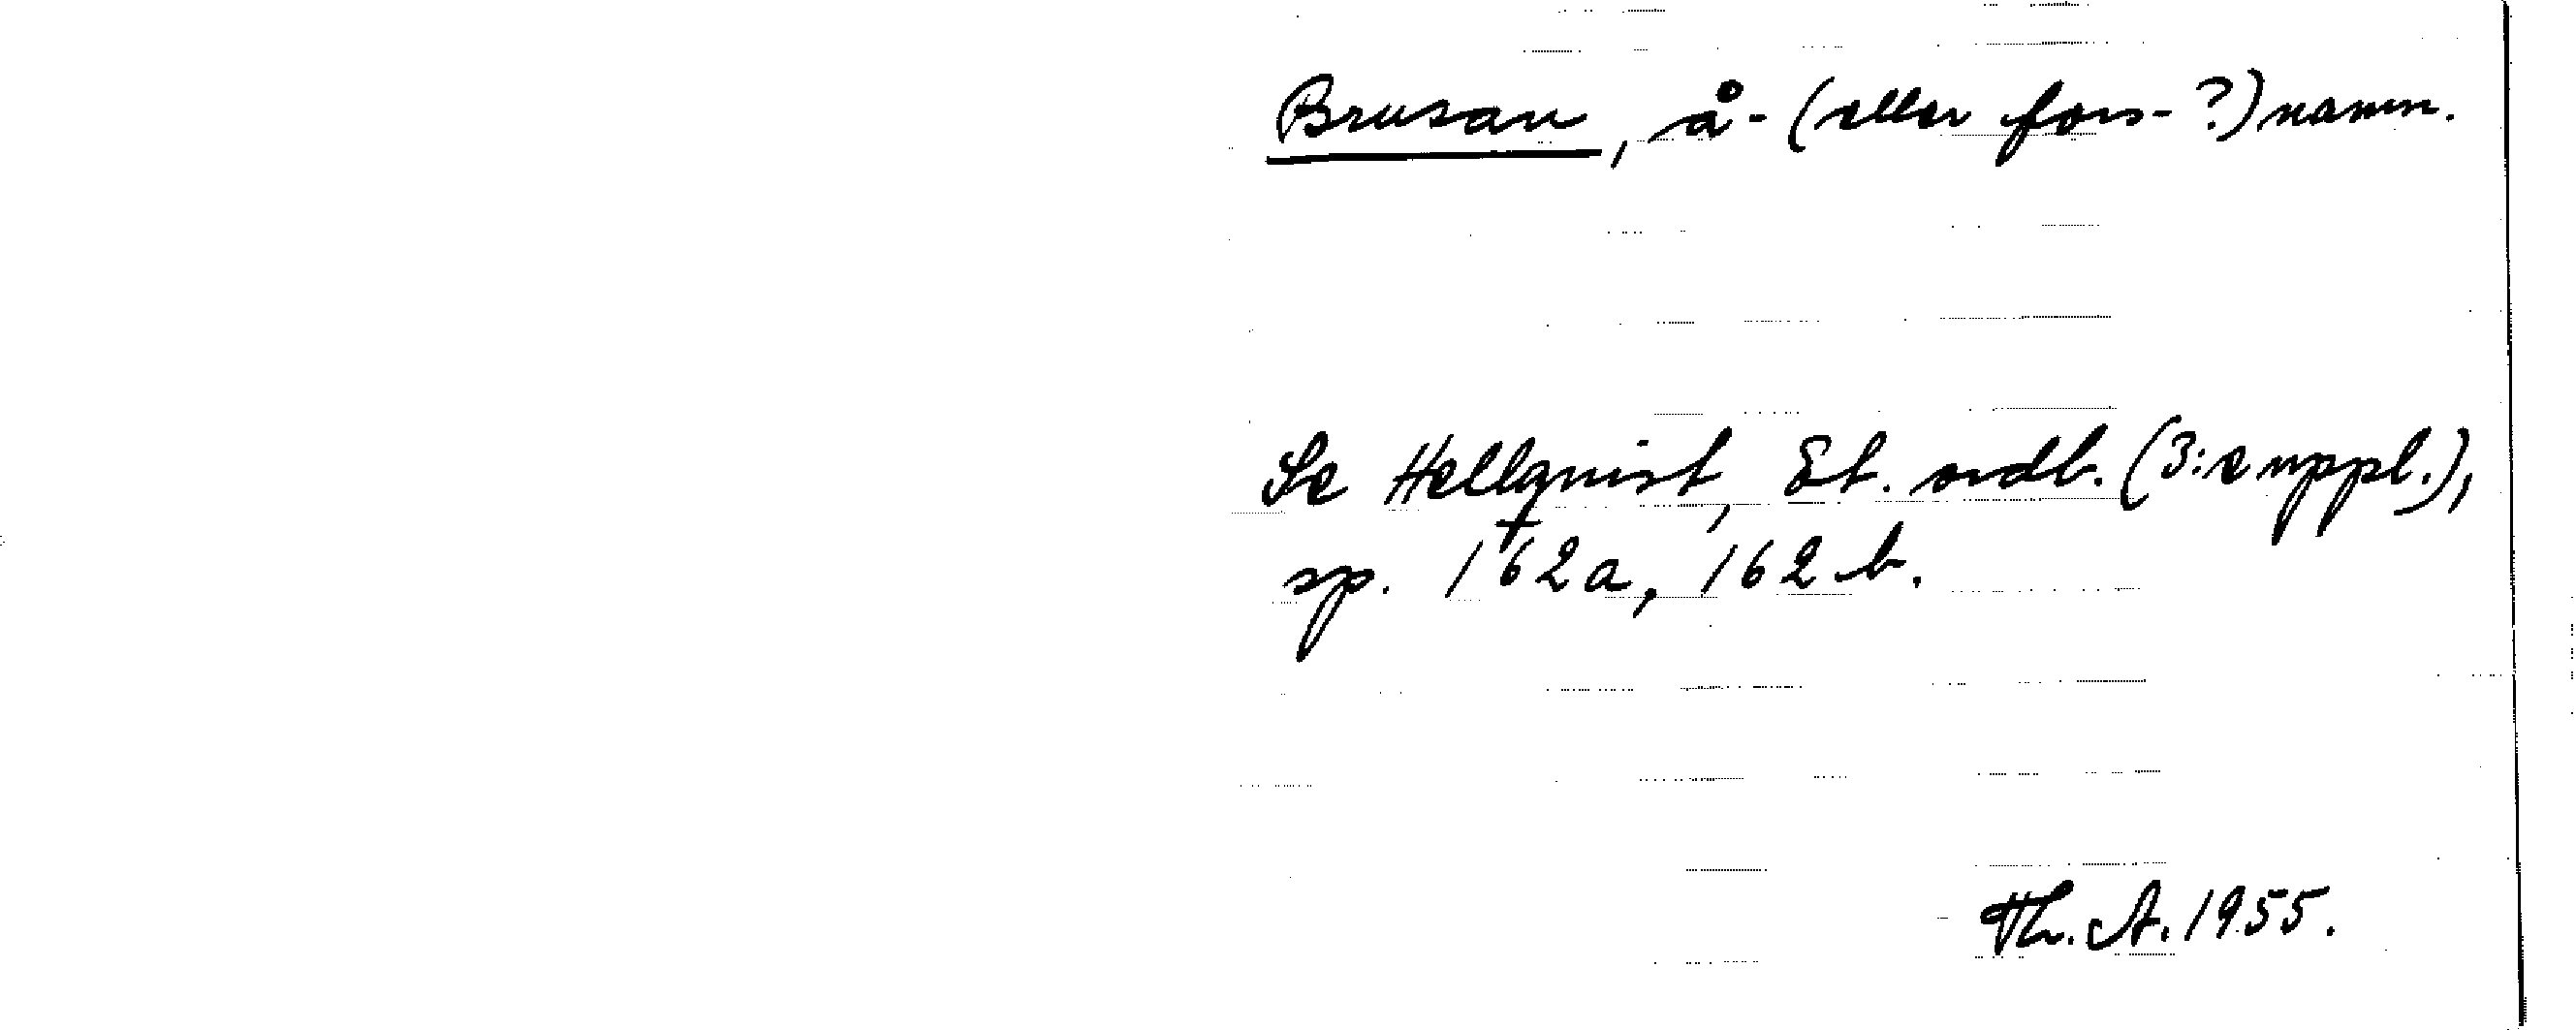 Brusan, å- (eller fors-?) namn.
Se Hellquist, Et. ordb. (3:e uppl.),
sp. 162a, 162 b.
Th. A. 1955.